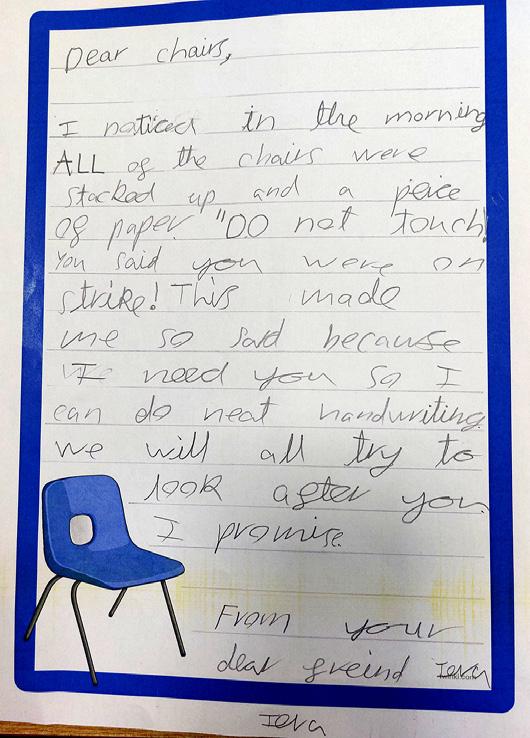 Dear chairs,
I noticed in the morning
ALL of the chairs were
stacked up and a peice
of paper. "DO not touch!
You said you were on
strike! This made
me so sad because
I need you so I
can do neat handwriting.
we will all try to
look after you.
I promise.
From your
dear freind